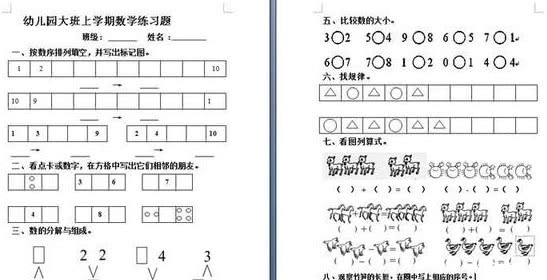 幼儿园大班上学期数学练习题
班级: 姓名:
一、按数序排列填空，并写出标记图。
1 2 10
10 9 1
1 3 9 2 4 10
二、看点卡或数字，在方格中写出它们相邻的朋友。
3 6 7
4 8
三、数的分解与组成。
2 2 4 3
五、比较数的大小。
3○2 5○4 9○8 6○5 7○8
6○7 7○8 1○2 0○1 4○4
六、找规律。
七、看图列算式。
( )+( )=( ) ( )-( )=( )
( )+( )=( ) ( )+( )=( )
( )-( )=( ) ( )-( )=( )